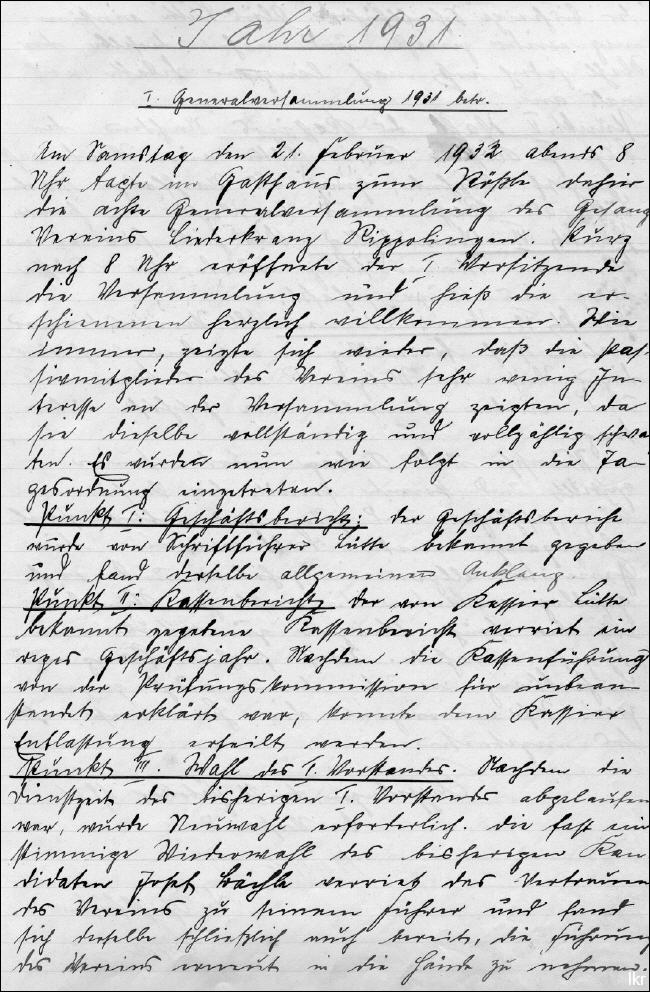 Jahr 1931.
I. Generalversammlung 1931 betr.
Am Samstag den 21. Februar 1932 abends 8
Uhr tagte im Gasthaus zum Rößle dahier
die achte Generalversammlung des Gesang
Vereins Liederkranz Rippolingen. Kurz
nach 8 Uhr eröffnete der I. Vorsitzende
die Versammlung und hieß die er-
schienenen herzlich willkommen. Wie
immer, zeigte sich wieder, daß die pas-
sivmitglieder des Vereins sehr wenig In-
teresse an der Versammlung zeigten, da
sie dieselbe vollständig und vollzählig
ten. Es wurden nun wie folgt in die Ta-
gesordnung eingetreten.
Punkt I: Geschäftsbericht: der Geschäftsbericht
wurde von Schriftführer Lütte bekannt gegeben
und fand derselbe allgemeinen Anklang.
Punkt II: Kassenbericht, der von Kassier Lütte
bekannt gegebene Kassenbericht verriet ein
reges Geschäftsjahr. Nachdem die Kassenführung
von der Prüfungskommission für unbean-
standet erklärt war, konnte dem Kassier
Entlastung erteilt werden.
Punkt III. Wahl des I. Vorstandes. Nachdem die
Dienstzeit des bisherigen I. Vorstands abgelaufen
war, wurde Neuwahl erforderlich. die fast ein
stimmige Wiederwahl des bisherigen Kan
didaten Josef Bächle verriet das Vertrauen
des Vereins zu seinem Führer und fand
sich derselbe schließlich auch bereit, die Führung
des Vereins erneut in die Hände zu nehmen.
lkr